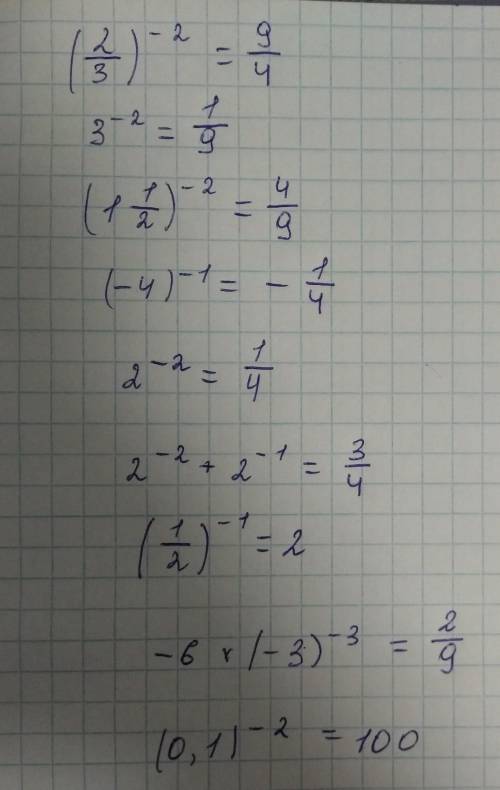 (2/3)^-2 = 9/4
3^-2 = 1/9
(1 1/2)^-2 = 4/9
(-4)^-1 = - 1/4
2^-2 = 1/4
2^-2 + 2^-1 = 3/4
(1/2)^-1 = 2
-6 × (-3)^-3 = 2/9
(0,1)^-2 = 100